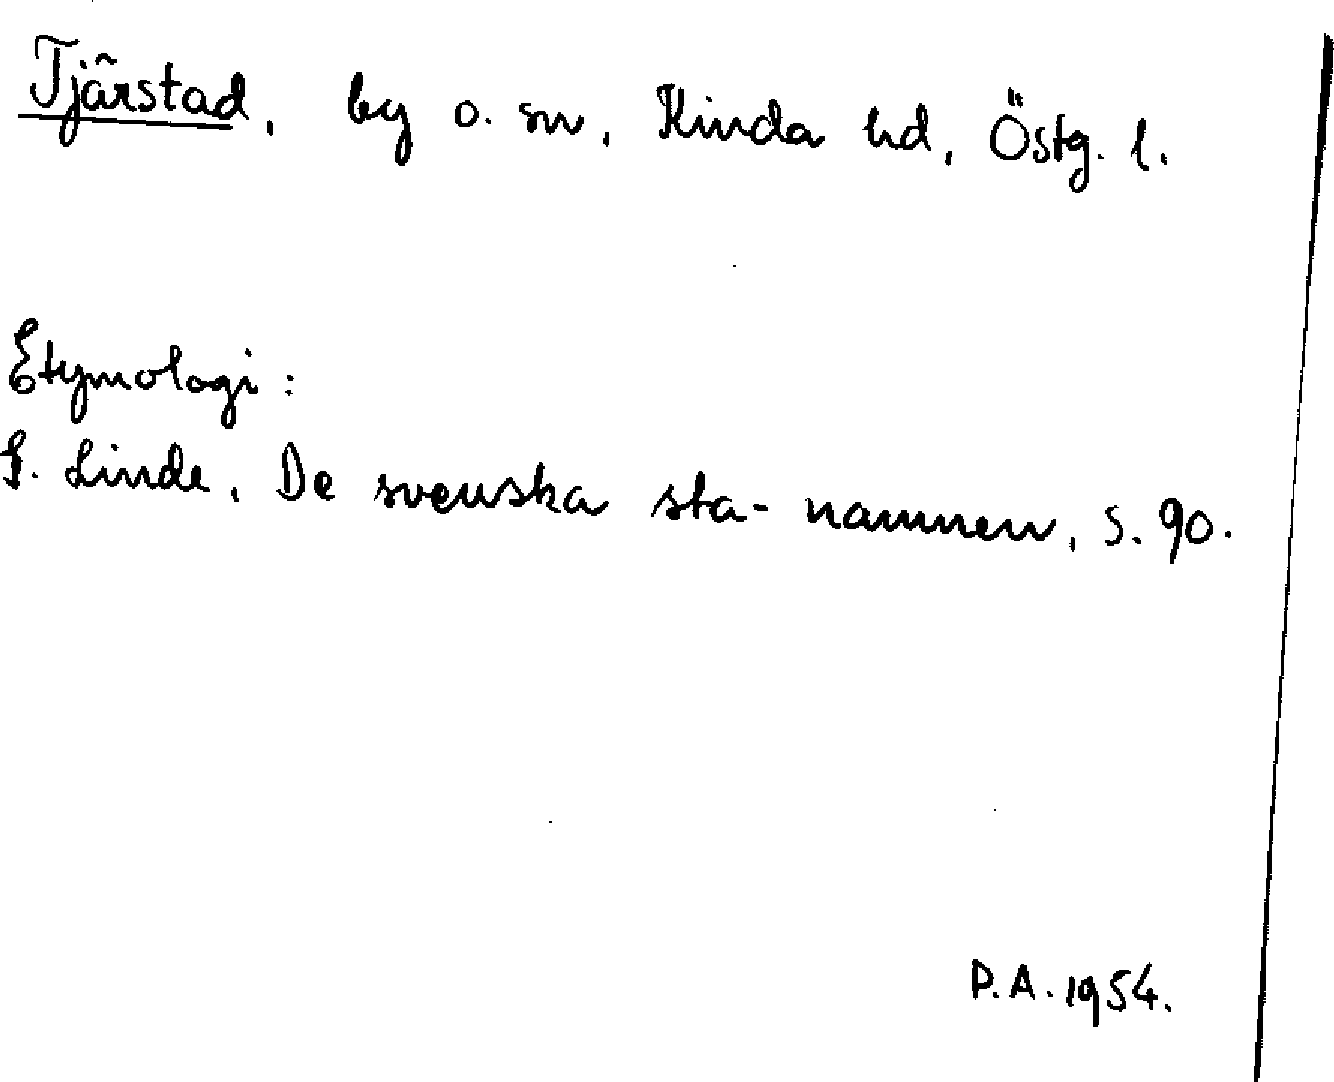 Tjärstad, by o. sn, Kinda hd, Östg. l.
Etymologi:
G. Linde, De svenska sta-namnen, s. 90.
P.A. 1954.